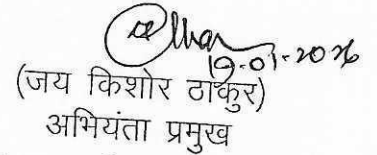 19-01-2026
(जय किशोर ठाकुर)
अभियंता प्रमुख